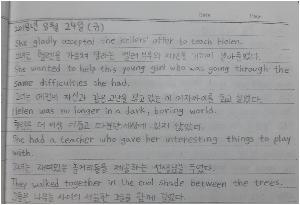 Date
2018년 8월 24일 (금)
She gladly accepted the Kellers' offer to teach Helen.
그녀는 헬렌을 가르쳐 달라는 켈러 부부의 제안을 기꺼이 받아들였다.
She wanted to help this young girl who was going through the
same difficulties she had.
그녀는 자신과 같은 고난을 겪고 있는 이 여자아이를 돕고 싶었다.
Helen was no longer in a dark, boring world.
헬렌은 더 이상 어둡고 따분한 세상에 있지 않았다.
She had a teacher who gave her interesting things to play
with.
그녀는 재미있는 놀거리들을 제공하는 선생님을 두었다.
They walked together in the cool shade between the trees.
그들은 나무들 사이의 시원한 그늘을 함께 걸었다.